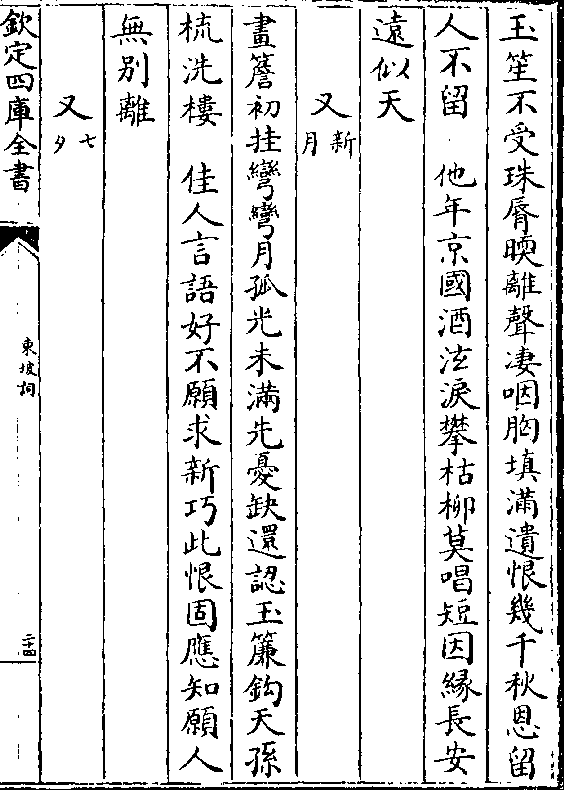 玉笙不受珠脣暖離聲淒咽胸填滿遺恨幾千秋恩留
人不留 他年京國酒泫淚攀枯柳莫唱短因緣長安
遠似天
又新月
畫簷初挂彎彎月孤光未滿先憂缺還認玉簾鈎天孫
梳洗樓 佳人言語好不願求新巧此恨固應知願人
無別離
又七夕
欽定四庫全書
東坡詞
二十四